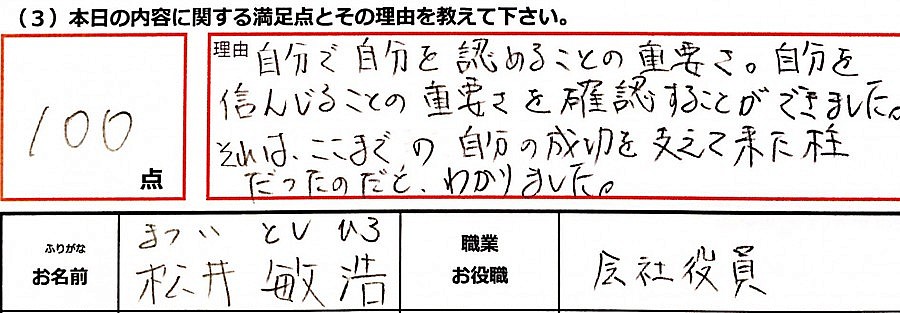 （３）本日の内容に関する満足点とその理由を教えて下さい。
100
点
理由 自分で自分を認めることの重要さ。自分を
信んじることの重要さを確認することができました。
それは、ここまでの自分の成功を支えて来た柱
だったのだと、わかりました。
ふりがな
お名前
まつい としひろ
松井 敏浩
職業
お役職
会社役員